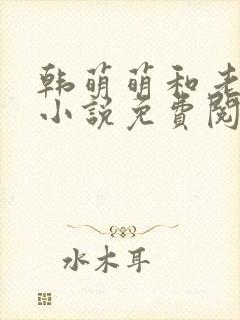 韩萌萌和老
小说免費閱
水木耳